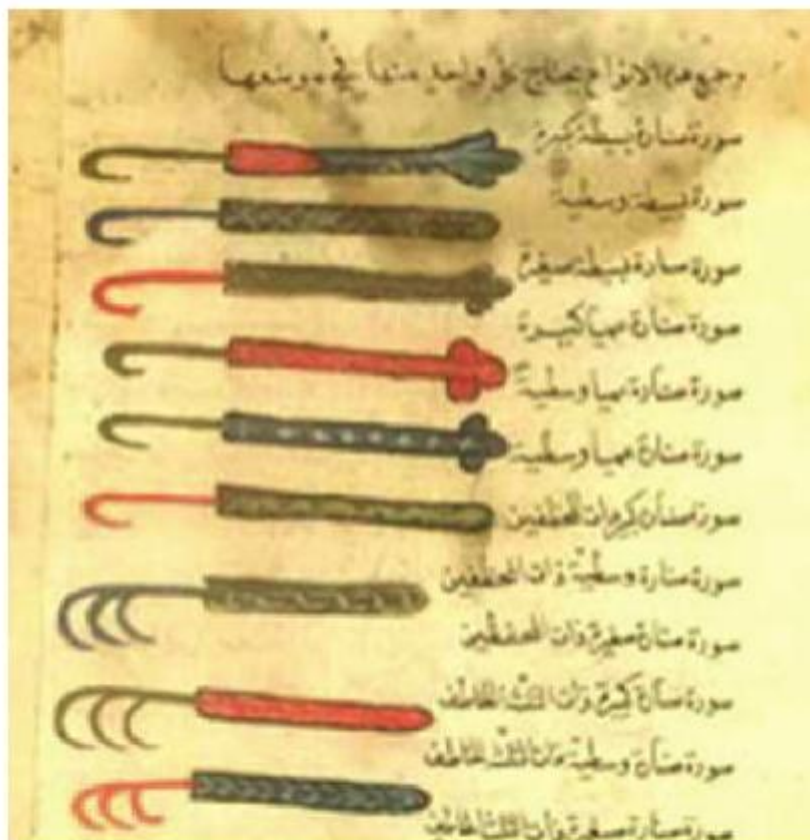 وجميع هذه الانواع يحتاج الى واحد منها في موضعها
صورة صنارة بسيطة كبيرة
صورة بسيطة وسطية
صورة صنارة بسيطة صغيرة
صورة صنارة عميا كبيرة
صورة صنارة عميا وسطية
صورة صنارة عميا وسطية
صورة صنارة كبيرة ذات المخطفين
صورة صنارة وسطية ذات المخطفين
صورة صنارة صغيرة ذات المخطفين
صورة صنارة كبيرة ذات الثلث المخاطف
صورة صنارة وسطية ذات الثلث المخاطف
صورة صنارة صغيرة ذات الثلث المخاطف